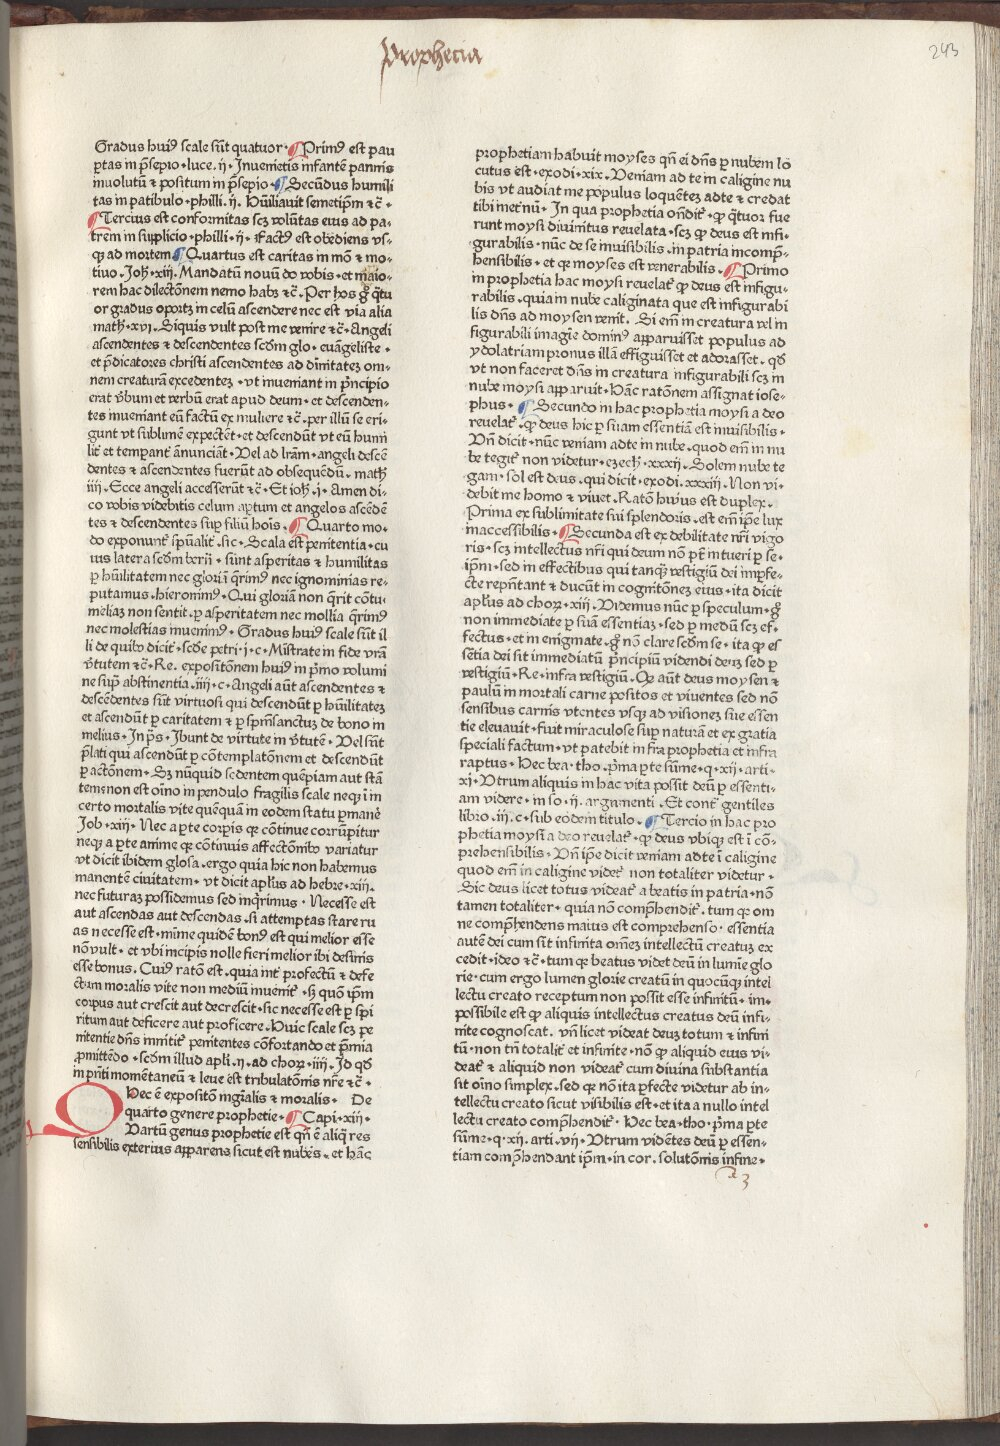 Prophecia
243
Gradus huiꝰ scale sūt quatuor · Primꝰ est pau
ꝑtas in p̄sepio · luce . ij . Inuenietis infantē pannis
inuolutū ⁊ positum in p̄sepio · Secūdus humili
tas in patibulo · philli . ij . Hūiliauit semetip̄m ⁊c̄ ·
Tercius est conformitas scꝫ volūtas eius ad pa-
trem in supplicio · philli · ij · Factꝰ est obediens vs-
qꝫ ad mortem Quartus est caritas in mō ⁊ mo-
tiuo . Joh̄ · xiij . Mandatū nouū do vobis · et maio-
rem hac dilectōnem nemo habꝫ ⁊c̄ . Per hos gͦ q̄tu
or gradus oportꝫ in celū ascendere nec est via alia
math̄ · xvi . Siquis vult post me venire ⁊c̄ · Angeli
ascendentes ⁊ descendentes scd̄m glo · euāgeliste ·
et p̄dicatores christi ascendentes ad diuītatez om-
nem creaturā excedentez · vt inueniant in p̄ncipio
erat v̄bum et verbū erat apud deum · et descenden-
tes inueniant eū factū ex muliere ⁊ c̄ . per illū se eri-
gunt vt sublimē expectēt · et descendūt vt eū humi
lit̄ et tempant̄ ānunciāt · Vel ad lr̄am · angeli descē
dentes ⁊ ascendentes fuerūt ad obsequēdū . math̄
iiij . Ecce angeli accesserūt ⁊c̄ · Et ioh̄ . j · Amen di-
co vobis videbitis celum aꝑtum et angelos ascēdē
tes ⁊ descendentes sup filiū hoīs . Quarto mo-
do exponunt̄ sp̄ualit̄ . sic · Scala est penitentia · cu
ius latera scd̄m bern̄ · sunt asperitas ⁊ humilitas
ꝑ hūilitatem nec gloriā q̄rimꝰ nec ignominias re-
putamus . hieronimꝰ · Qui gloriā non q̄rit cōtu-
meliaꝫ non sentit . ꝑ asperitatem nec mollia q̄rimꝰ
nec molestias inuenimꝰ · Gradus huiꝰ scale sūt il
li de quibꝰ dicit̄ · scd̄e petri · j · c · Mistrate in fide vr̄ā
v̄tutem ⁊ c̄ · Re . expositōnem huiꝰ in p̄mo volumi
ne sup̄ abstinentia . iiij · c · Angeli aūt ascendentes ⁊
descēdentes sūt virtuosi qui descendūt ꝑ hūilitatez
et ascendūt ꝑ caritatem ⁊ ꝑ sp̄m sanctuꝫ de bono in
melius · In p̄s · Ibunt de virtute in v̄tutē · Vel sūt
p̄lati qui ascendūt ꝑ cōtemplatōnem et descendūt
ꝑ actōnem · Sꝫ nūquid sedentem quēpiam aut stā
tem · non est oīno in pendulo fragilis scale neqꝫ ī in
certo mortalis vite quēquā in eodem statu ꝑmanē
Job · xiij · Nec a parte corꝑis qꝫ cōtinue corrūpitur
neqꝫ a ꝑte anime qꝫ cōtinuis affectōnibꝰ variatur
vt dicit ibidem glosa . ergo quia hic non habemus
manentē ciuitatem · vt dicit ap̄lꝰus ad hebre · xiij .
nec futuraꝫ possidemus sed inq̄rimus · Necesse est
aut ascendas aut descendas . si attemptas stare ru
as necesse est · mīme quidē bonꝰ est qui melior esse
nō vult · et vbi incipis nolle fieri melior ibi desinis
esse bonus . Cuiꝰ ratō est . quia int̄ ꝓfectū ⁊ defe
ctum moralis vite non mediū inuenit̄ · sꝫ quō ip̄m
corpus aut crescit aut decrescit · sic necesse est ꝑ spi
ritum aut deficere aut proficere . Huic scale scꝫ pe
nitentie dn̄s innitit̄ penitentes cōfortando et p̄mia
ꝓmittēdo · scd̄m illud apli . ij . ad choꝝ · iiij . Id qd̄
in pn̄ti momētaneū ⁊ leue est tribulatōnis nr̄e ⁊c̄ ·
Hec ē expositō mḡialis ⁊ moralis · De
quarto genere prophetie · Capi · xiii ·
Quartū genus prophetie est qn̄ ē aliq̄ res
sensibilis exterius apparens sicut est nubes . et hāc
prophetiam habuit moyses qn̄ ei dn̄s ꝑ nubem lo
cutus est . exodi . xix . Veniam ad te in caligine nu
bis vt audiat me populus loquētez ad te ⁊ credat
tibi in et̄nū · In qua prophetia ond̄it̄ · ꝙ q̄tuor fue
runt moysi diuinitus reuelata · scꝫ ꝙ deus est infi-
gurabilis · nūc de se inuisibilis . in patria incomp̄-
hensibilis · et qꝫ moyses est venerabilis . Primo
in prophetia hac moysi reuelat̄ ꝙ deus est infigu-
rabilis . quia in nube caliginata que est infigurabi
lis dn̄s ad moysen venit . Si em̄ in creatura vel in
figurabili imagīe dominꝰ apparuisset populus ad
ydolatriam pronus illā effiguisset et adorasset . qd̄
vt non faceret dn̄s in creatura infigurabili scꝫ in
nube moysi apparuit · Hāc ratōnem assignat iose-
phus · Secundo in hac prophetia moysi a deo
reuelat̄ . ꝙ deus hic ꝑ suam essentiā est inuisibilis ·
Vn̄ dicit · nūc veniam ad te in nube . quod em̄ in nu
be tegit̄ non videtur · ezech̄ · xxxij . Solem nube te
gam · sol est deus . qui dicit · exodi . xxxiii . Non vi-
debit me homo ⁊ viuet . Ratō huius est duplex .
Prima ex sublimitate sui splendoris . est em̄ ip̄e lux
inaccessibilis · Secunda est ex debilitate nr̄i vigo
ris · scꝫ intellectus nr̄i qui deum nō pt̄ intueri ꝑ se-
ip̄m · sed in effectibus qui tanqꝫ vestigiū dei imꝑfe-
cte repn̄tant ⁊ ducūt in cognitōnez eius · ita dicit
ap̄lꝰus ad choꝝ · xiij . Videmus nūc ꝑ speculum · gͦ
non immediate ꝑ suā essentiaꝫ · sed ꝑ mediū scꝫ ef-
fectus · et in enigmate . gͦ nō clare scd̄m se · ita ꝙ es
sētia dei sit immediatū p̄ncipiū videndi deuꝫ sed ꝑ
vestigiū · Re · infra vestigiū . Qꝫ aūt deus moysen ⁊
paulū in mortali carne positos et viuentes sed nō
sensibus carnis vtentes vsqꝫ ad visionez sue essen
tie eleuauit · fuit miraculose sup naturā et ex gratia
speciali factum · vt patebit infra prophetia et infra
raptus · Hec bea · tho . p̄ma ꝑte sūme · q · xij · arti ·
xj · Vtrum aliquis in hac vita possit deū ꝑ essenti-
am videre · in so · ij . argumenti . Et cont̄ gentiles
libro . iij . c · sub eodem titulo . Tercio in hac pro
phetia moysi a deo reuelat̄ · ꝙ deus vbiqꝫ est ī cō-
prehensibilis · Vn̄ ip̄e dicit veniam ad te ī caligine
quod em̄ in caligine videt̄ non totaliter videtur ·
Sic deus licet totus videat̄ a beatis in patria · nō
tamen totaliter · quia non comp̄hendit̄ . tum qꝫ om
ne comp̄hendens maius est comprehenso · essentia
autē dei cum sit infinita omnē intellectū creatuꝫ ex
cedit · ideo ⁊ c̄ · tum qꝫ beatus videt deū in lumīe glo
rie · cum ergo lumen glorie creatū in quocūqꝫ intel
lectu creato receptum non possit esse infinitū · im-
possibile est ꝙ aliquis intellectus creatus deū infi-
nite cognoscat . vn̄ licet videat deuꝫ totum ⁊ infini
tū · non tn̄ totalit̄ et infinite · nō ꝙ aliquid eius vi-
deat̄ ⁊ aliquid non videat̄ cum diuina substantia
sit oīno simplex . sed qꝫ nō ita ꝑfecte videtur ab in-
tellectu creato sicut visibilis est · et ita a nullo intel
lectu creato comp̄hendit̄ · Hec bea · tho · p̄ma ꝑte
sūme · q · xij . arti · vij · Vtrum vidētes deū ꝑ essen-
tiam comp̄hendant ip̄m · in cor . solutōnis in fine ·